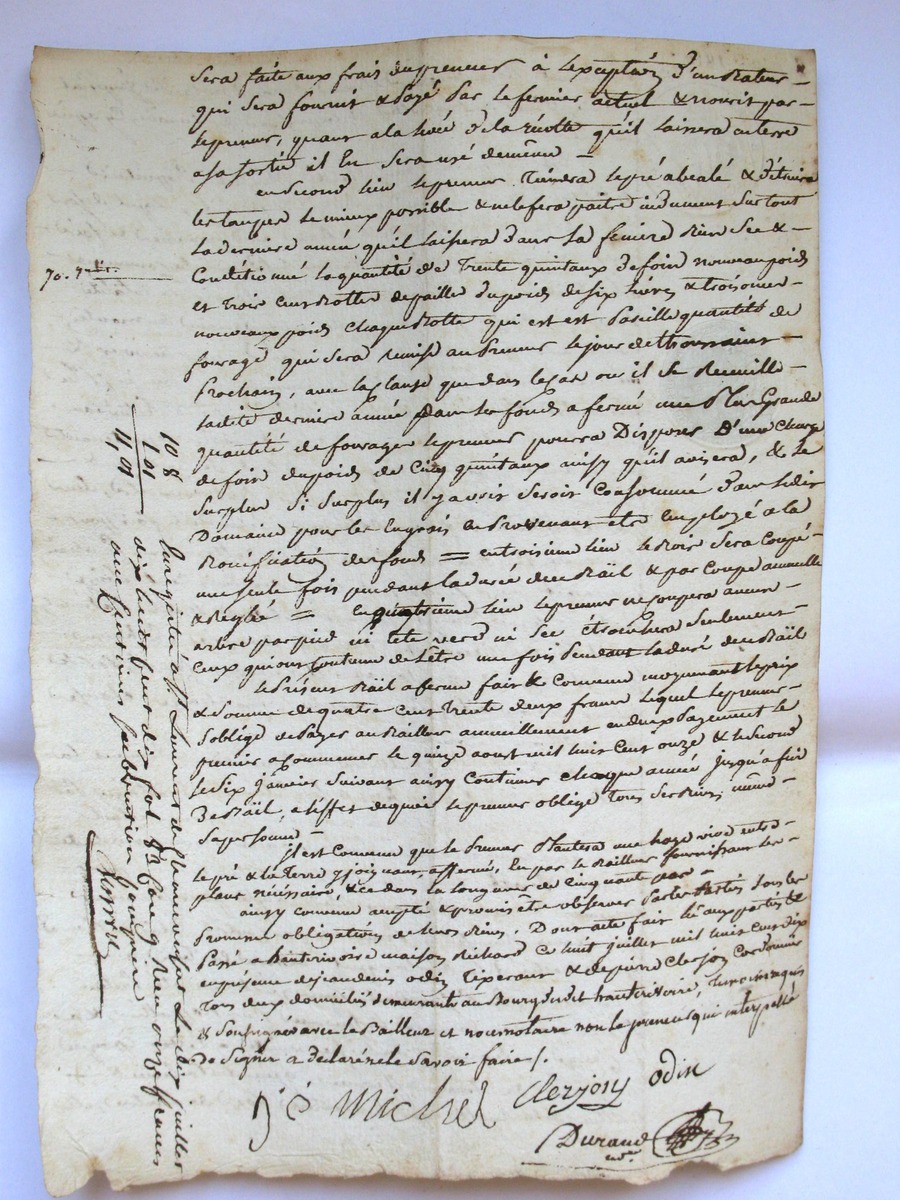 Sera faite aux frais du preneur à l'exception d'un Bateur
qui Sera fournit & payé par le fermier actuel & nourit par
le preneur, quant a la de la récolte qu'il laissera en terre
a Sa Sortie il En Sera usé de même
en Second lieu le preneur Tiendra le pré & détruira
les taupes le mieux possible & ne le fera paitre indument Sur tout
la derniere année qu'il laissera dans la feniere bien Sec &
Conditionné la quantité de Trente quintaux de foin nouveau poids
et Trois Cent Bottes de paille du poids de Six livres & trois onces
nouveaux poids Chaque Botte qui est Pareille quantité de
fourage qui Sera remise au Preneur le jour de thoussaint
Prochain, avec la Clause que dans le Cas ou il Se Recueille
ladite derniere année dans les fonds affermé une Plus Grande
quantité de fourages le preneur pourra Disposer D'une Charge
de foin du poids de Cinq quintaux ainsy qu'il avisera, & le
Surplus Si Surplus il y avoit Seroit Consommé dans ledit
Domaine pour les Engrais en Provenant etre Employé a la
Bonification des fonds = en troisieme lieu le Bois Sera Coupé
une Seule fois pendant la durée du Bail & par Coupe annuelle
& Réglée = En quatrieme lieu le preneur ne Coupera aucun
arbre par pied ni tete verd ni Sec Seulement
Ceux qui ont Coutume de l'être une fois Pendant la duré du Bail
Le Présent Bail a ferme fait & Convenu moyennant le prix
& Somme de quatre Cent Trente deux francs lequel le preneur
S'oblige de Payer au Bailleur annuellement en deux Payement le
premier a Commencer le quinze aoust mil huit Cent onze & le Second
le Six janvier Suivant ainsy Continuer chaque année jusqu'a fin
De Bail, a l'effet de quoi le preneur oblige Tous Ses Biens, même
Sa personne
Il est Convenu que le Preneur Plantera une haye vive entre
le pré & la Terre y joignant, affermé, par le Bailleur fournissant les
plans nécessaire, & ce dans la longueur de Cinquante pas
ainsy Convenu accepté & promis être observer Par les Parties Sous les
Promesse obligations de leurs Biens. Dont acte fait lû aux parties &
Passé a hauterivoire maison Richard Ce huit juillet mil huit Cent dix
en présence de jean denis odin Tixerant & de pierre Clerjon Cordonnier
Tous deux domiciliés demeurants au Bourg dudit hauterivoire, Temoins requis
& Soussignés avec le Bailleur et nous notaire non le preneur qui interpellé
De Signer a déclaré ne le Savoir faire /.
J C Michel Clerjon odin
Durand
nore
108
1,01
11,01
Enregistré a St Laurent de Chamousset Le dix juillet
dix huit Cent dix fol 83 Reçu onze francs
un Centime Subvention Comprise